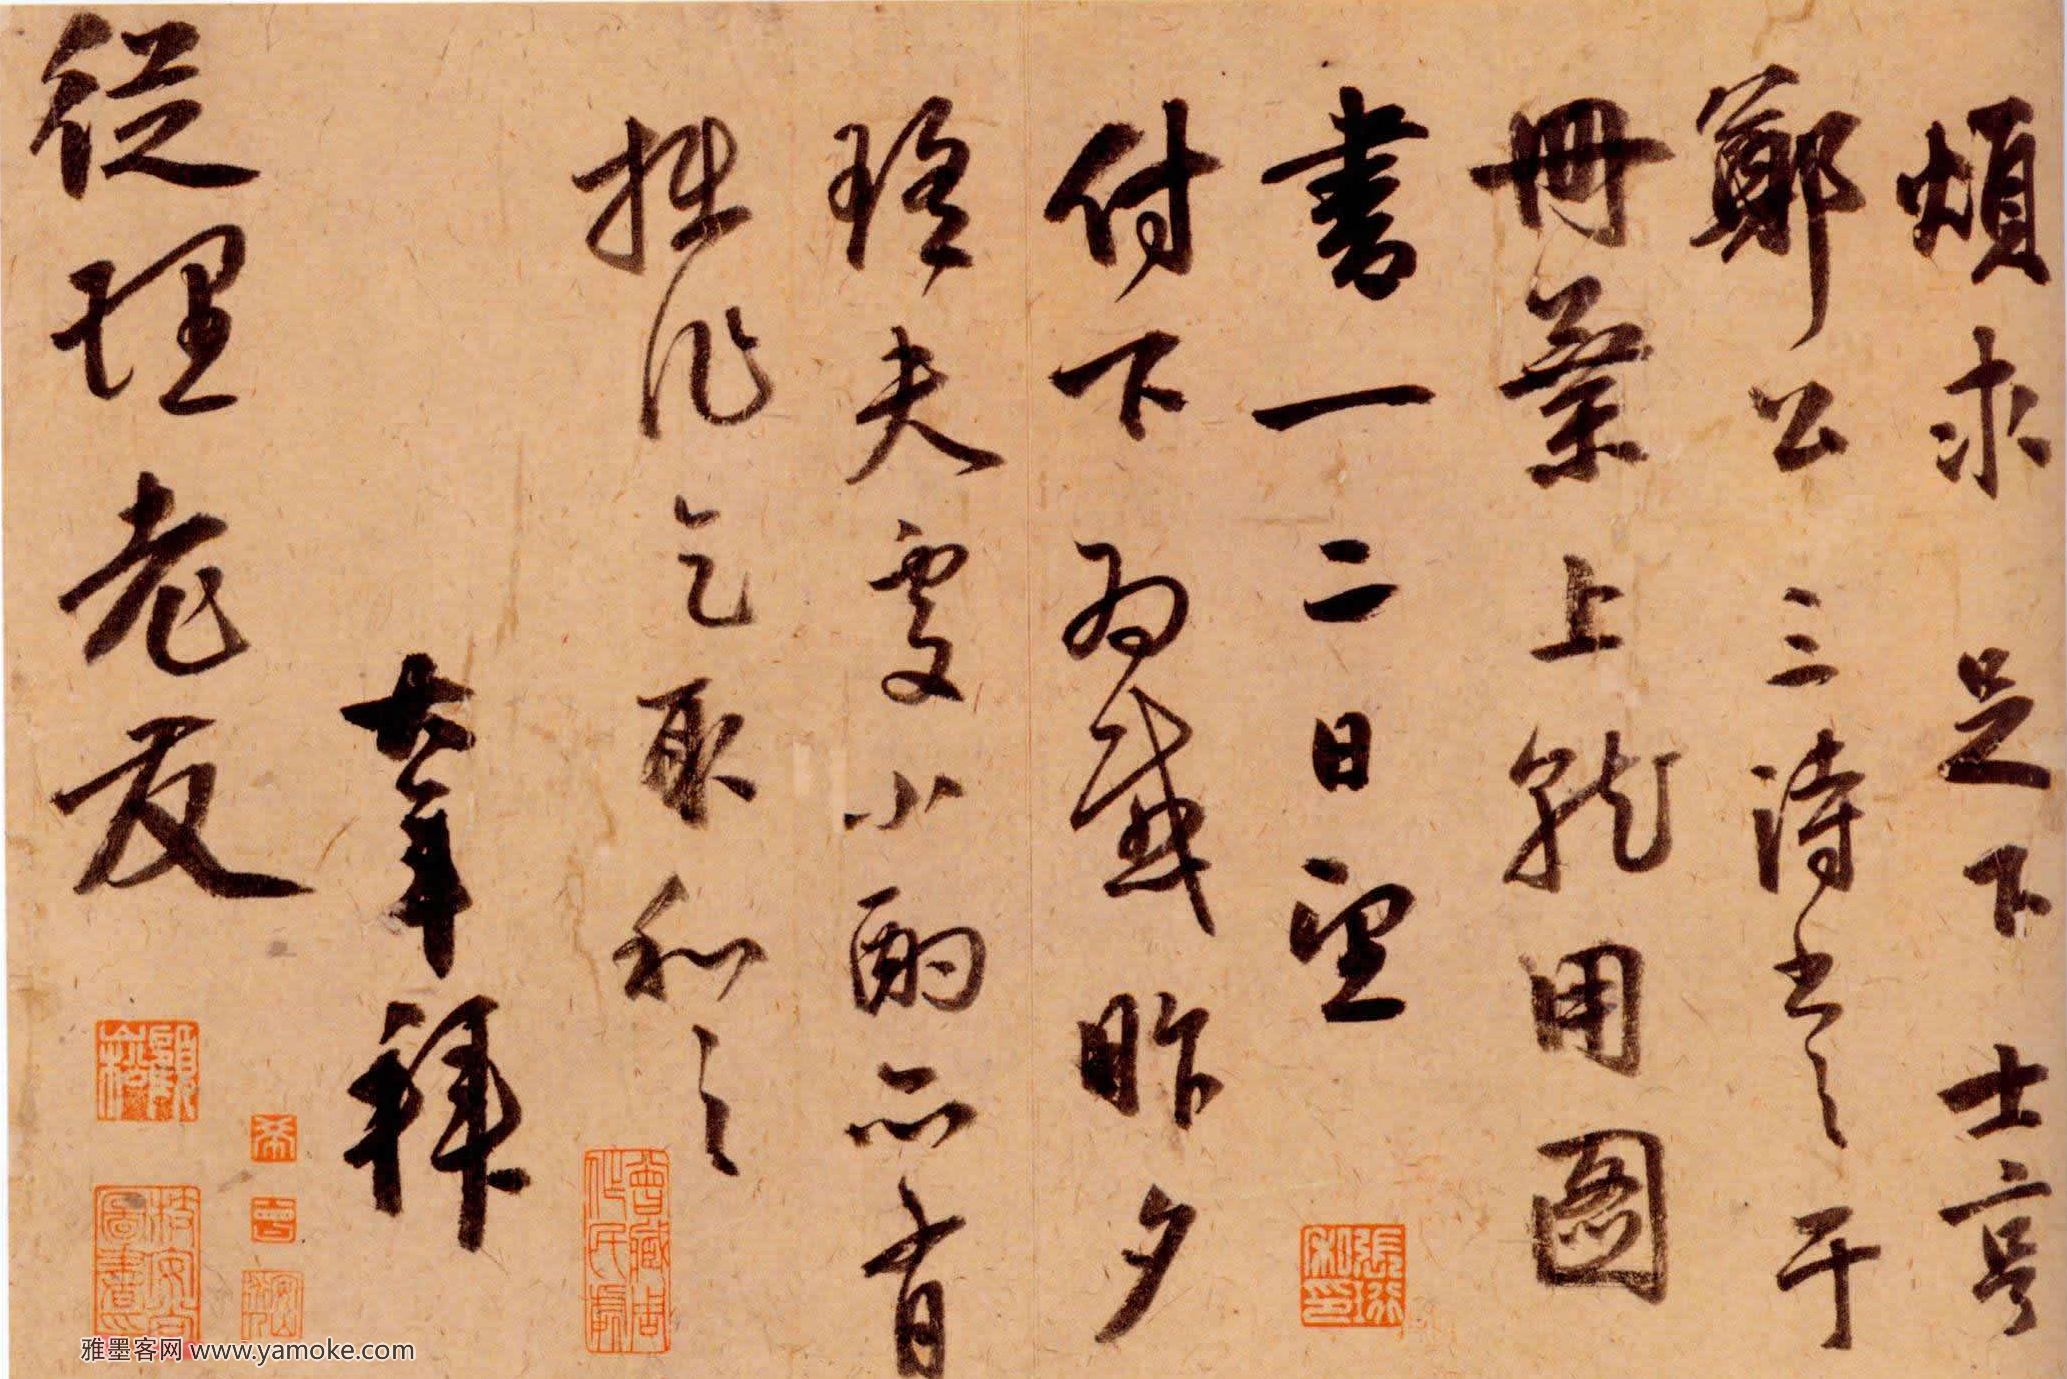 煩求足下士亨
鄭公三詩書之于
冊葉上就用圖
書一二日望
付下為感昨夕
夫處小酌亦有
拙作乞取和之
大年拜
從理老友
張珩私印
雅墨客网 www.yamoke.com